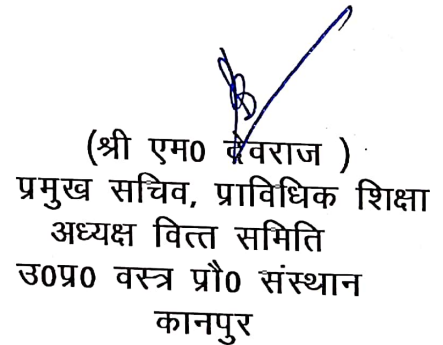 (श्री एम0 देवराज )
प्रमुख सचिव, प्राविधिक शिक्षा
अध्यक्ष वित्त समिति
उ0प्र0 वस्त्र प्रौ0 संस्थान
कानपुर